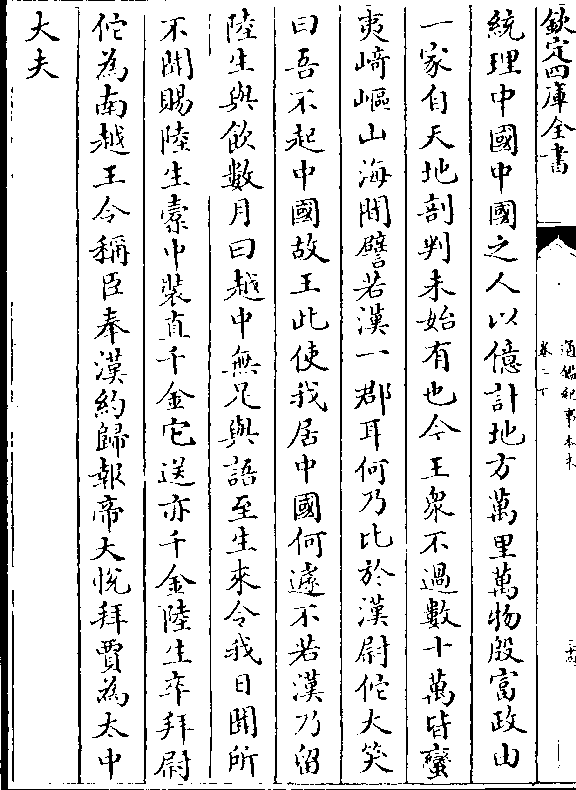 欽定四庫全書
通鑑紀事本末
卷二下
統理中國中國之人以億計地方萬里萬物殷富政由
一家自天地剖判未始有也今王衆不過數十萬皆蠻
夷崎嶇山海間譬若漢一郡耳何乃比於漢尉佗大笑
曰吾不起中國故王此使我居中國何遽不若漢乃留
陸生與飲數月曰越中無足與語至生來令我日聞所
不聞賜陸生橐中裝直千金它送亦千金陸生卒拜尉
佗為南越王令稱臣奉漢約歸報帝大悅拜賈為太中
大夫